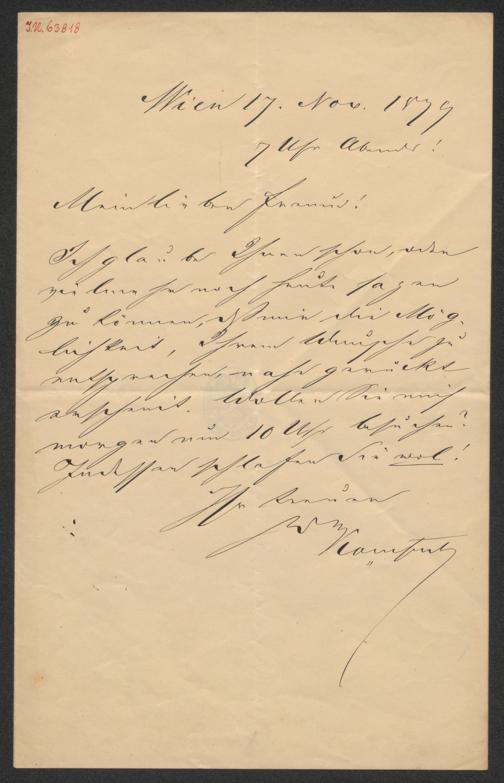 J.N. 63818
Wien 17. Nov. 1879
7 Uhr Abends!
Mein lieber Freund!
Ich glaube Ihnen schon, oder
vielmehr noch heute sagen
zu können, daß mir die Mög-
lichkeit, Ihrem Wunsche zu
entsprechen, nahe gerückt
erscheint. Wollen Sie mich
morgen um 10 Uhr besuchen?
Indessen schlafen Sie wol!
Ihr treuer
Kompert